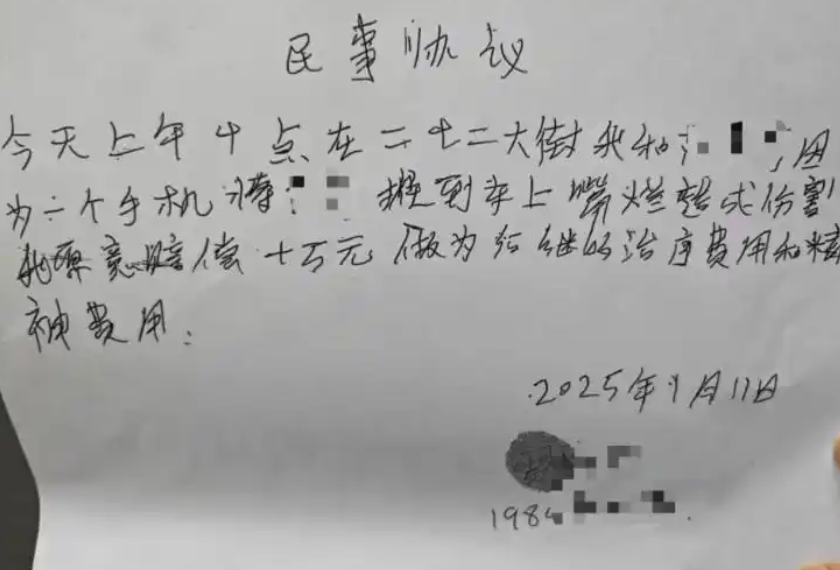 民事协议
今天上午十点在二七二大街我和 因
为一个手机 将 摁到车上嘴烂造成伤害
我愿意赔偿十万元做为后继的治疗费用和精
神费用:
2025年9月11日
198